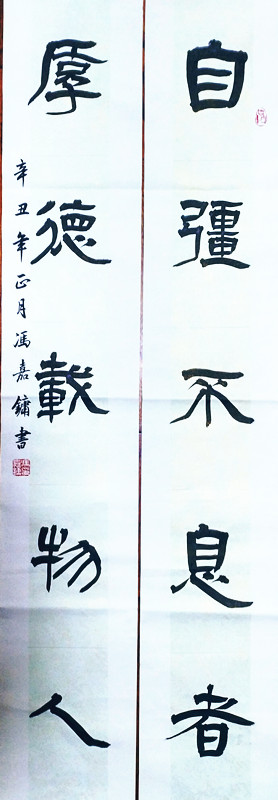 自彊不息者
厚德載物人
辛丑年正月馮嘉鏞書